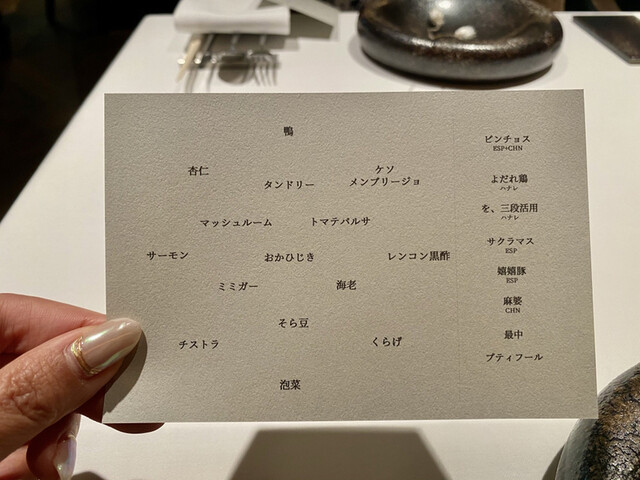 鴨
杏仁
タンドリー
ケソ
メンブリージョ
マッシュルーム
トマテバルサ
サーモン
おかひじき
レンコン黒酢
ミミガー
海老
そら豆
チストラ
くらげ
泡菜
ピンチョス
ESP+CHN
よだれ鶏
ハナレ
を、三段活用
ハナレ
サクラマス
ESP
嬉嬉豚
ESP
麻婆
CHN
最中
プティフール